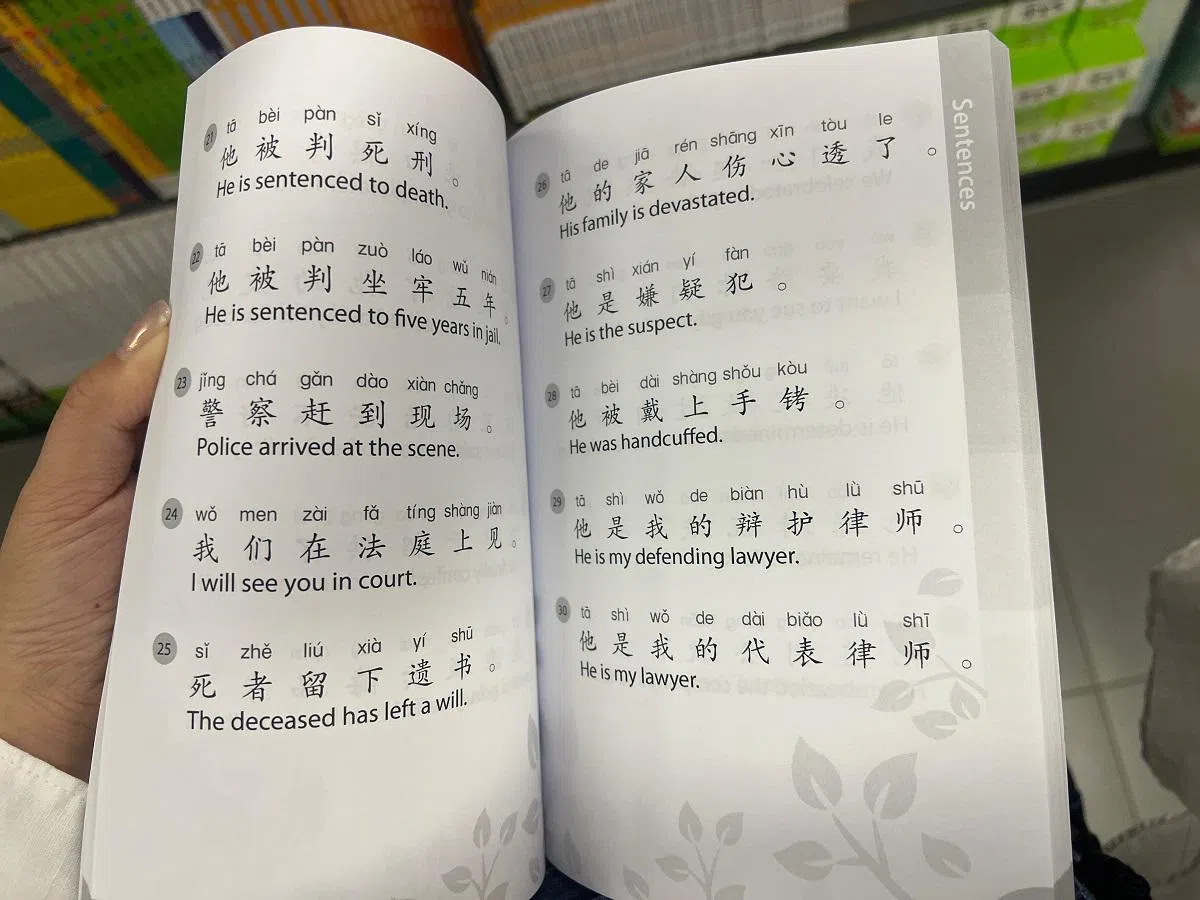 21 tā bèi pàn sǐ xíng
他被判死刑。
He is sentenced to death.
22 tā bèi pàn zuò láo wǔ nián
他被判坐牢五年。
He is sentenced to five years in jail.
23 jǐng chá gǎn dào xiàn chǎng
警察赶到现场。
Police arrived at the scene.
24 wǒ men zài fǎ tíng shàng jiàn
我们在法庭上见。
I will see you in court.
25 sǐ zhě liú xià yí shū
死者留下遗书。
The deceased has left a will.
Sentences
26 tā de jiā rén shāng xīn tòu le
他的家人伤心透了。
His family is devastated.
27 tā shì xián yí fàn
他是嫌疑犯。
He is the suspect.
28 tā bèi dài shàng shǒu kòu
他被戴上手铐。
He was handcuffed.
29 tā shì wǒ de biàn hù lǜ shū
他是我的辩护律师。
He is my defending lawyer.
30 tā shì wǒ de dài biǎo lǜ shī
他是我的代表律师。
He is my lawyer.